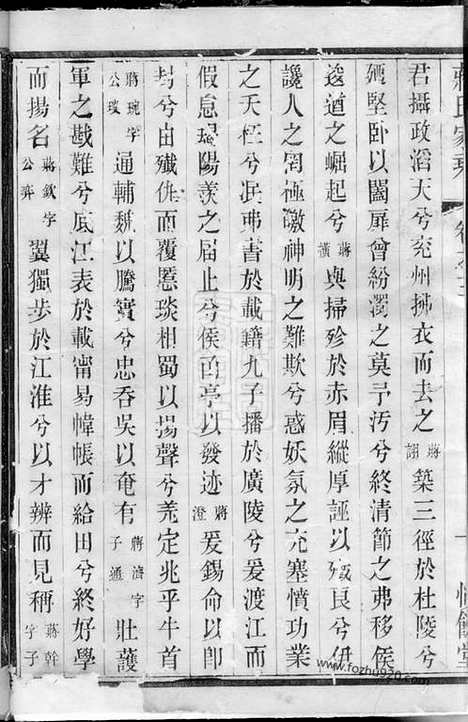 蔣氏家乘 卷之三
君攝政滔天兮兖州拂衣而去之蔣詡築三徑於杜陵兮
堅臥以闔扉曾紛濁之莫予汚兮終清節之弗移侯
逡遒之崛起兮蔣橫與掃殄於赤眉縱厚誣以殲良兮伊
讒人之罔極激神明之難欺兮惑妖氛之充塞憤功業
之夭枉兮泯弗書於載籍九子播於廣陵兮爰渡江而
假息瑒陽羨之届止兮侯亭以發迹蔣澄爰錫命以即
封兮由殲佻而覆慝琰相蜀以揚聲兮羌定兆乎牛首
蔣琬字公琰通輔魏以騰實兮忠吞吳以奄有蔣濟字子通壯護
軍之戡難兮底江表於載甯易幃帳而給田兮終好學
而揚名蔣欽字公奕翼獨步於江淮兮以才辨而見稱蔣幹字子